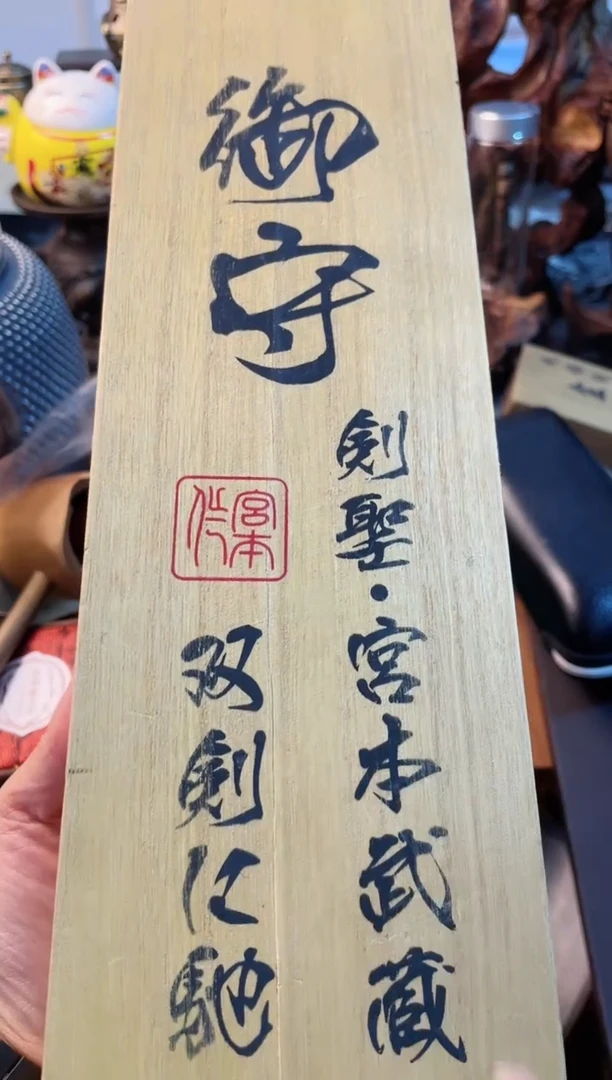 御守
剣聖・宮本武蔵
双剣に馳
宮本
作